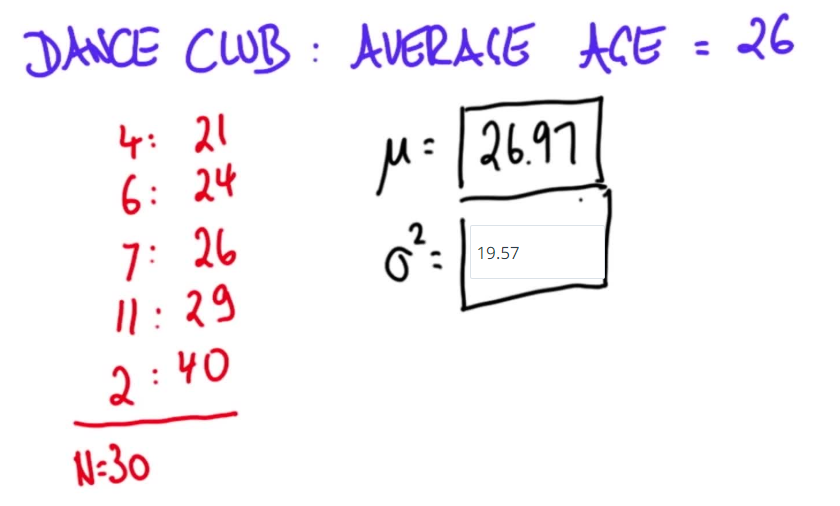 DANCE CLUB : AVERAGE AGE = 26
4: 21
6: 24
7: 26
11: 29
2: 40
N=30
μ= 26.97
σ²= 19.57